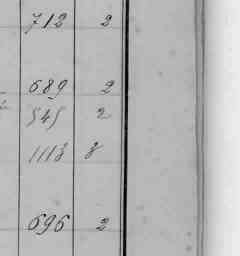 712 2
689 2
545 2
1113 8
696 2